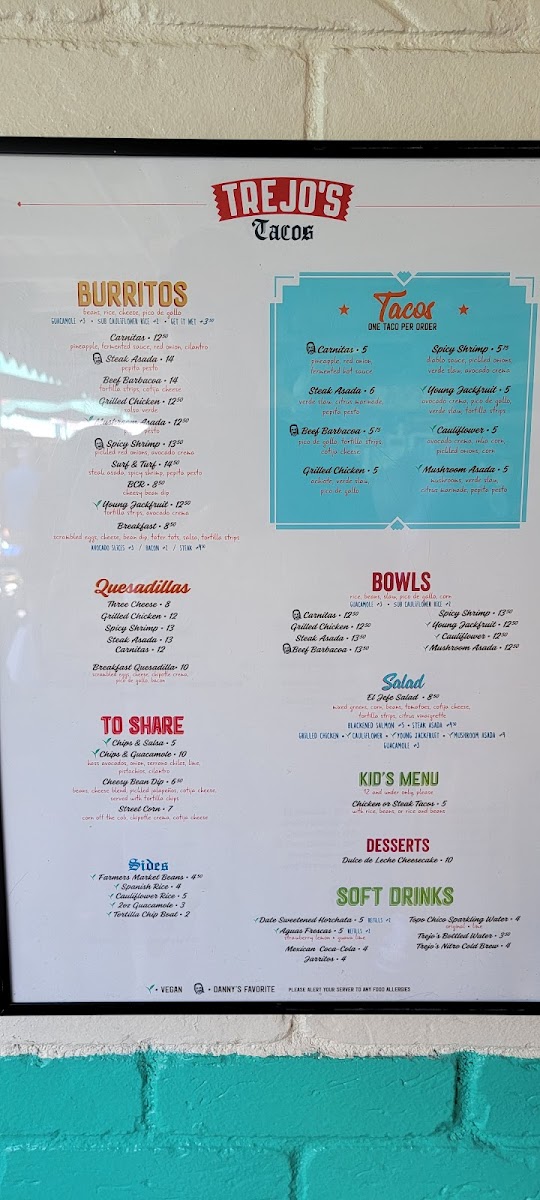 TREJO'S
Tacos
BURRITOS
beans, rice, cheese, pico de gallo
GUACAMOLE +3 • SUB CAULIFLOWER RICE +2 • GET IT WET +3.50
Carnitas • 12.50
pineapple, fermented sauce, red onion, cilantro
Steak Asada • 14
pepita pesto
Beef Barbacoa • 14
tortilla strips, cotija cheese
Grilled Chicken • 12.50
salsa verde
Mushroom Asada • 12.50
pesto
Spicy Shrimp • 13.50
pickled red onions, avocado crema
Surf & Turf • 14.50
steak asada, spicy shrimp, pepita pesto
BCR • 8.50
cheesy bean dip
Young Jackfruit • 12.50
tortilla strips, avocado crema
Breakfast • 8.50
scrambled eggs, cheese, bean dip, tater tots, salsa, tortilla strips
AVOCADO SLICES +3 / BACON +2 / STEAK +4.50
Quesadillas
Three Cheese • 8
Grilled Chicken • 12
Spicy Shrimp • 13
Steak Asada • 13
Carnitas • 12
Breakfast Quesadilla • 10
scrambled eggs, cheese, chipotle crema,
pico de gallo, bacon
TO SHARE
Chips & Salsa • 5
Chips & Guacamole • 10
hass avocados, onion, serrano chiles, lime,
pistachios, cilantro
Cheesy Bean Dip • 6.50
beans, cheese blend, pickled jalapeños, cotija cheese,
served with tortilla chips
Street Corn • 7
corn off the cob, chipotle crema, cotija cheese
Sides
Farmers Market Beans • 4.50
Spanish Rice • 4
Cauliflower Rice • 5
2oz Guacamole • 3
Tortilla Chip Boat • 2
Tacos
ONE TACO PER ORDER
Carnitas • 5
pineapple, red onion,
fermented hot sauce
Steak Asada • 6
verde slaw, citrus marinade,
pepita pesto
Beef Barbacoa • 5.75
pico de gallo, tortilla strips,
cotija cheese
Grilled Chicken • 5
achiote, verde slaw,
pico de gallo
Spicy Shrimp • 5.75
diablo sauce, pickled onions,
verde slaw, avocado crema
Young Jackfruit • 5
avocado crema, pico de gallo,
verde slaw, tortilla strips
Cauliflower • 5
avocado crema, corn,
pickled onions, corn
Mushroom Asada • 5
mushrooms, verde slaw,
citrus marinade, pepita pesto
BOWLS
rice, beans, slaw, pico de gallo, corn
GUACAMOLE +3 • SUB CAULIFLOWER RICE +2
Carnitas • 12.50
Grilled Chicken • 12.50
Steak Asada • 13.50
Beef Barbacoa • 13.50
Spicy Shrimp • 13.50
Young Jackfruit • 12.50
Cauliflower • 12.50
Mushroom Asada • 12.50
Salad
El Jefe Salad • 8.50
mixed greens, corn, beans, tomatoes, cotija cheese,
tortilla strips, citrus vinaigrette
BLACKENED SALMON +5 • STEAK ASADA +4.50
GRILLED CHICKEN • CAULIFLOWER • YOUNG JACKFRUIT • MUSHROOM ASADA +4
GUACAMOLE +3
KID'S MENU
12 and under only please
Chicken or Steak Tacos • 5
with rice, beans, or rice and beans
DESSERTS
Dulce de Leche Cheesecake • 10
SOFT DRINKS
Date Sweetened Horchata • 5 REFILLS +2
Aguas Frescas • 5 REFILLS +2
strawberry lemon • guava lime
Mexican Coca-Cola • 4
Jarritos • 4
Topo Chico Sparkling Water • 4
original • lime
Trejo's Bottled Water • 3.50
Trejo's Nitro Cold Brew • 4
• VEGAN • DANNY'S FAVORITE PLEASE ALERT YOUR SERVER TO ANY FOOD ALLERGIES